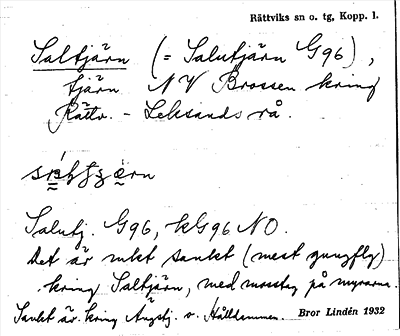 Rättviks sn o. tg, Kopp. l.
Saltjärn (= Salutjärn G96),
tjärn NV Brossen kring
Rättv. - Leksands rå.
Salutj. G96, kG96 NO.
Det är mkt sankt (mest gungfly)
kring Saltjärn, med mosstag på myrarna.
Sankt är kring Ängstj. o. Hålldammen.
Bror Lindén 1932